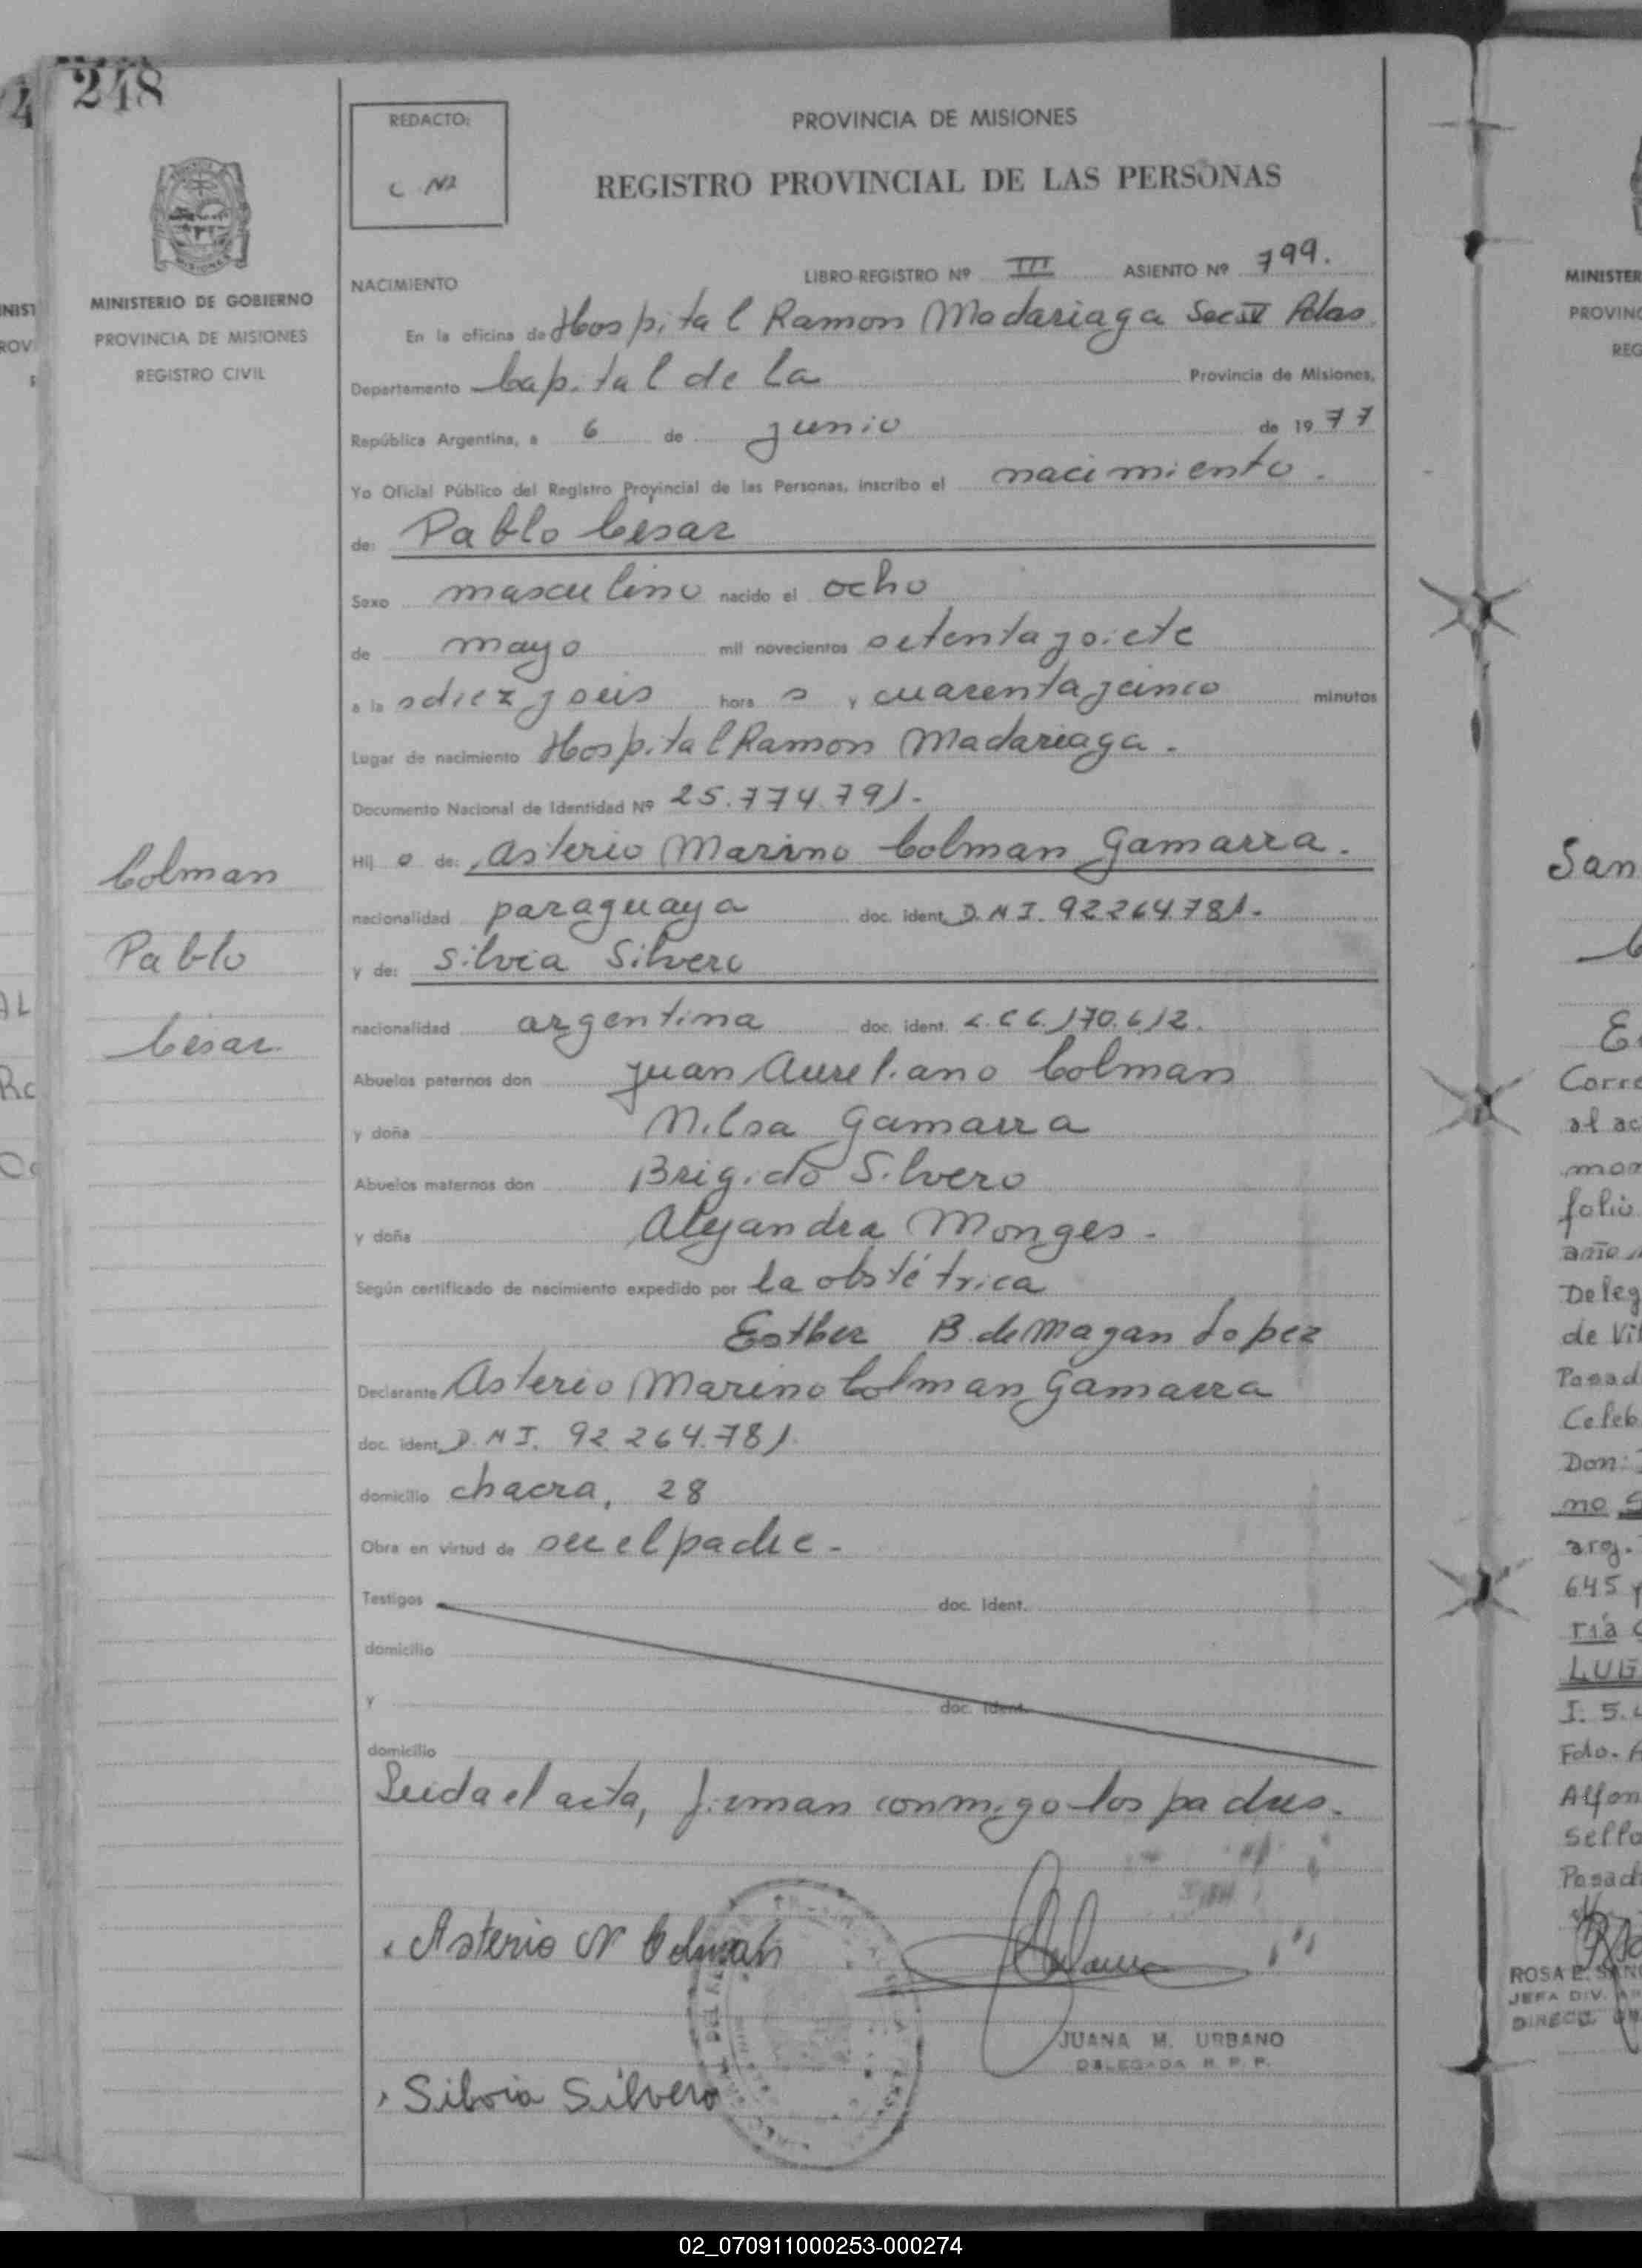 248
MINISTERIO DE GOBIERNO
PROVINCIA DE MISIONES
REGISTRO CIVIL
Colman
Pablo
Cesar
REDACTO:
PROVINCIA DE MISIONES
REGISTRO PROVINCIAL DE LAS PERSONAS
NACIMIENTO LIBRO REGISTRO Nº III ASIENTO Nº 799.
En la oficina de Hospital Ramon Madariaga Sec IV Pdas
Departamento Capital de la Provincia de Misiones,
República Argentina, a 6 de junio de 1977
Yo Oficial Público del Registro Provincial de las Personas, inscribo el nacimiento.
de: Pablo Cesar
Sexo masculino nacido el ocho
de mayo mil novecientos setenta y siete
a la s diez y seis hora s y cuarenta y cinco minutos
Lugar de nacimiento Hospital Ramon Madariaga.
Documento Nacional de Identidad Nº 25.774.791.
Hij o de: Asterio Marino Colman Gamarra.
nacionalidad paraguaya doc. ident. D.N.I. 92264781.
y de: Silvia Silvero
nacionalidad argentina doc. ident. L.C 6.170.612.
Abuelos paternos don Juan Aureliano Colman
y doña Nilsa Gamarra
Abuelos maternos don Brigido Silvero
y doña Alejandra Monges.
Según certificado de nacimiento expedido por la obstétrica
Esther B. de Magan Lopez
Declarante Asterio Marino Colman Gamarra
doc. ident. D.N.I. 92.264.781.
domicilio chacra, 28
Obra en virtud de ser el padre.
Testigos doc. ident.
domicilio
y doc. ident.
domicilio
Leida el acta, firman conmigo los padres.
Asterio M Colman
JUANA M. URBANO
DELEGADA R. P. P.
Silvia Silvero
MINISTER
PROVINC
REG
San
Corre
al ac
mon
folio
año
Deleg
de Vil
Posad
Celeb
Don:
mo S
arg.
645 y
ría
LUG
I. 5.
Fdo. A
Alfon
Sello
Posad
JEFA DIV.
02_070911000253-000274